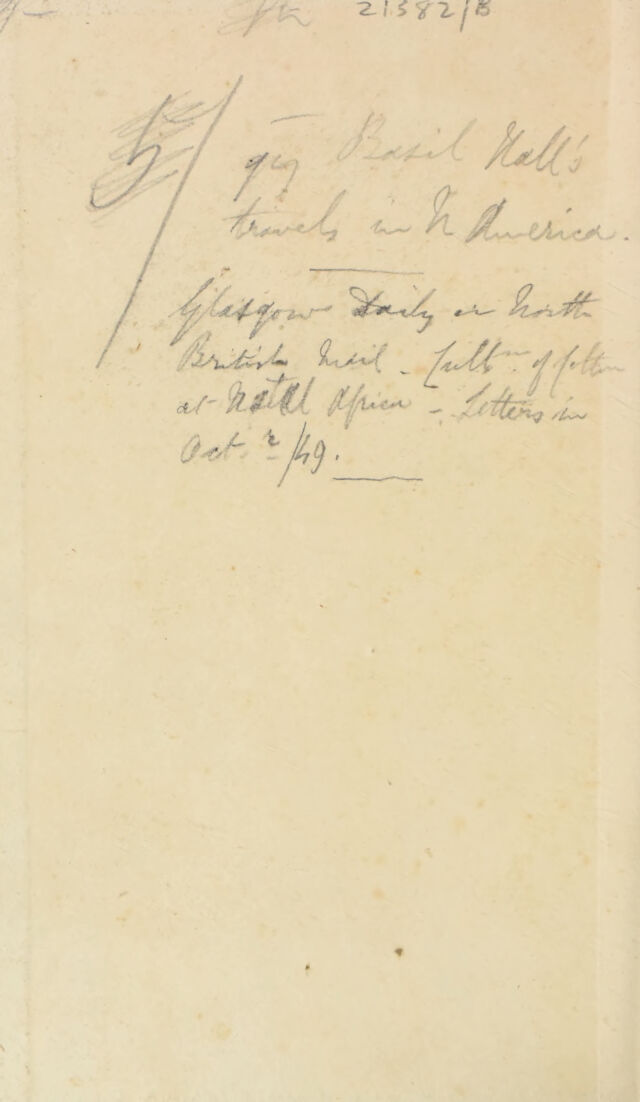 21382/B
5/
Basil Hall's
travels in N America.
Glasgow Daily or North
British Mail - Cultn. of Cotton
at Natal Africa - Letters in
Oct. r /49.